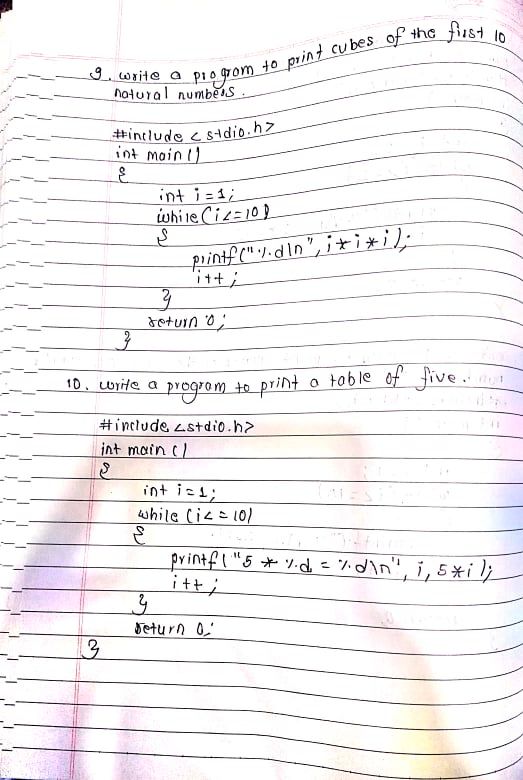 9. write a program to print cubes of the first 10
natural numbers.
#include <stdio.h>
int main()
{
int i=1;
while(i<=10)
{
printf("%d\n", i*i*i);
i++;
}
return 0;
}
10. write a program to print a table of five.
#include <stdio.h>
int main()
{
int i=1;
while (i<=10)
{
printf("5 * %d = %d\n", i, 5*i);
i++;
}
return 0;
}